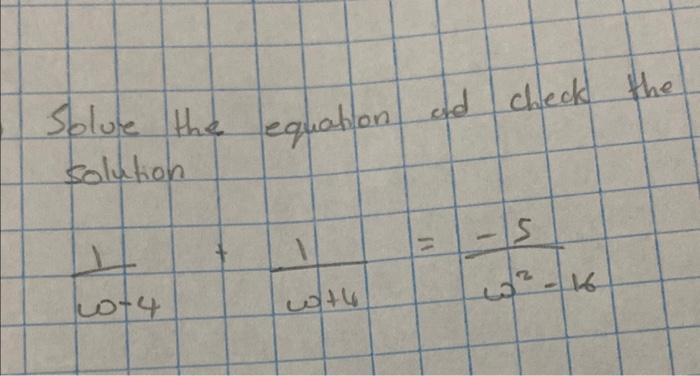 Solve the equation ad check the
solution
1/(w-4) + 1/(w+4) = -5/(w² - 16)